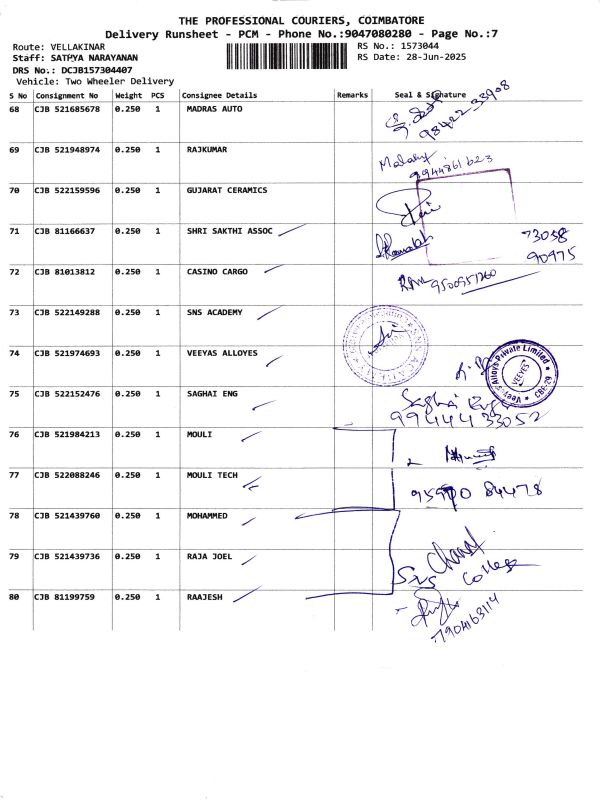 THE PROFESSIONAL COURIERS, COIMBATORE
Delivery Runsheet - PCM - Phone No.:9047080280 - Page No.:7
Route: VELLAKINAR
RS No.: 1573044
Staff: SATHYA NARAYANAN
RS Date: 28-Jun-2025
DRS No.: DCJB157304407
Vehicle: Two Wheeler Delivery
S No Consignment No Weight PCS Consignee Details Remarks Seal & Signature
68 CJB 521685678 0.250 1 MADRAS AUTO
98422 33908
69 CJB 521948974 0.250 1 RAJKUMAR
9944861623
70 CJB 522159596 0.250 1 GUJARAT CERAMICS
71 CJB 81166637 0.250 1 SHRI SAKTHI ASSOC
73058
90975
72 CJB 81013812 0.250 1 CASINO CARGO
RAM 9500957260
73 CJB 522149288 0.250 1 SNS ACADEMY
74 CJB 521974693 0.250 1 VEEYAS ALLOYES
Veeyes Alloys Private Limited
VEEYES
CBE-29
75 CJB 522152476 0.250 1 SAGHAI ENG
Saghai Engg
99444 33052
76 CJB 521984213 0.250 1 MOULI
77 CJB 522088246 0.250 1 MOULI TECH
95970 84478
78 CJB 521439760 0.250 1 MOHAMMED
79 CJB 521439736 0.250 1 RAJA JOEL
SNS College
80 CJB 81199759 0.250 1 RAAJESH
7904163114